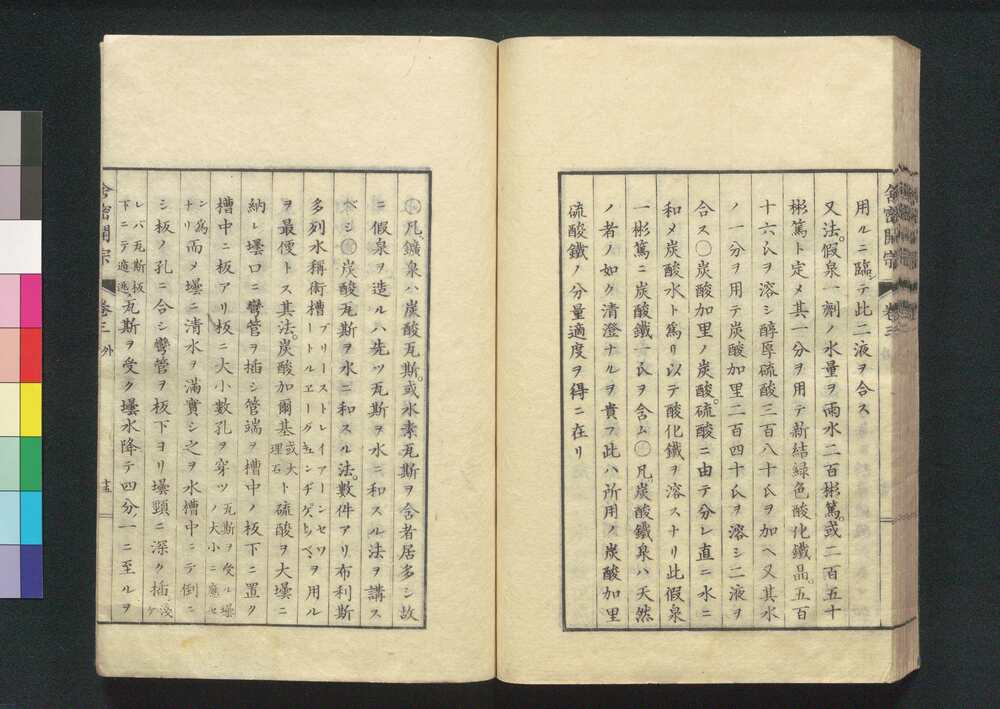 舎密開宗 巻三
用ルニ臨テ此二液ヲ合ス
又法。假泉一劑ノ水量ヲ雨水二百彬篤。或二百五十
彬篤ト定メ其一分ヲ用テ新結緑色酸化鐵晶。五百
十六氏ヲ溶シ醇厚硫酸三百八十氏ヲ加ヘ又其水
ノ一分ヲ用テ炭酸加里二百四十氏ヲ溶シ二液ヲ
合ス〇炭酸加里ノ炭酸。硫酸ニ由テ分レ直ニ水ニ
和メ炭酸水ト為リ以テ酸化鐵ヲ溶スナリ此假泉
一彬篤ニ炭酸鐵一氏ヲ含ム〇凡。炭酸鐵泉ハ天然
ノ者ノ如ク清澄ナルヲ貴フ此ハ所用ノ炭酸加里
硫酸鐵ノ分量適度ヲ得ニ在リ
凡。鑛泉ハ炭酸瓦斯。或水素瓦斯ヲ含者居多シ故
ニ假泉ヲ造ルハ先ツ瓦斯ヲ水ニ和スル法ヲ講ス
ベシ 炭酸瓦斯ヲ水ニ和スル法。數件アリ布利斯
多列水稱衝槽 ブリーストレイアーンセワートルヱーグキュンヂゲトベ、ヲ用ル
ヲ最便トス其法。炭酸加爾基 或大理石 ト硫酸ヲ大壜ニ
納レ壜口ニ彎管ヲ插シ管端ヲ槽中ノ板下ニ置ク
槽中ニ板アリ板ニ大小數孔ヲ穿ツ 瓦斯ヲ受ル壜ノ大小ニ應セ
ン為ナリ 而メ壜ニ清水ヲ滿實シ之ヲ水槽中ニテ倒ニ
シ板ノ孔ニ合シ彎管ヲ板下ヨリ壜頸ニ深ク插 淺ケ
レバ瓦斯板下ニテ適逃 瓦斯ヲ受ク壜水降テ四分一ニ至ルヲ
舎密開宗 巻三 外 十五